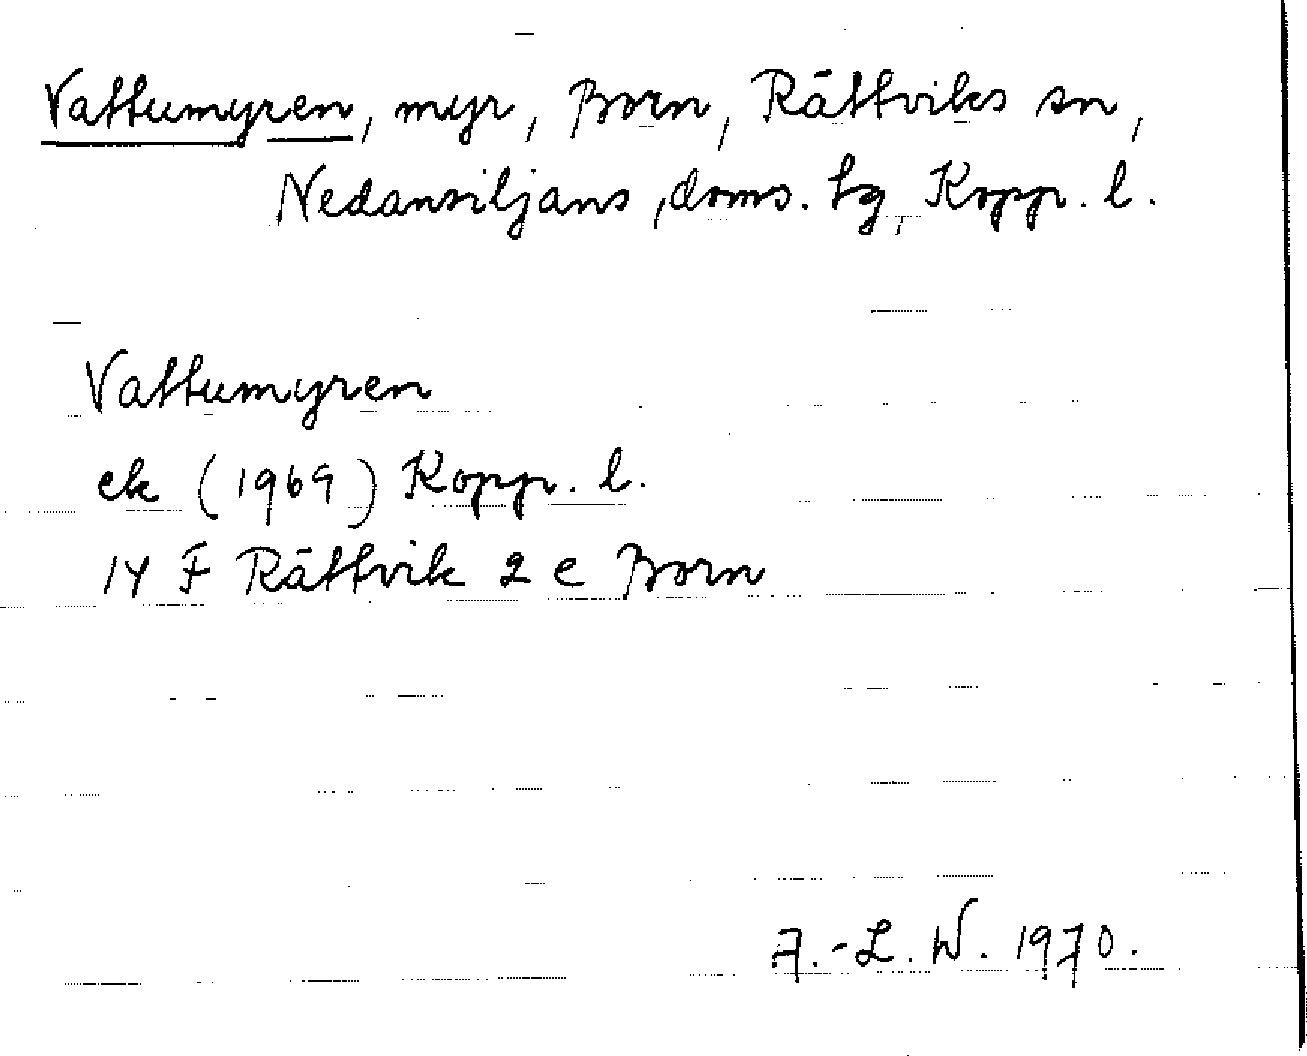 Vattumyren, myr, Born, Rättviks sn,
Nedansiljans, doms. tg, Kopp. l.
Vattumyren
ek (1969) Kopp. l.
14 F Rättvik 2 e Born
A.-L. W. 1970.